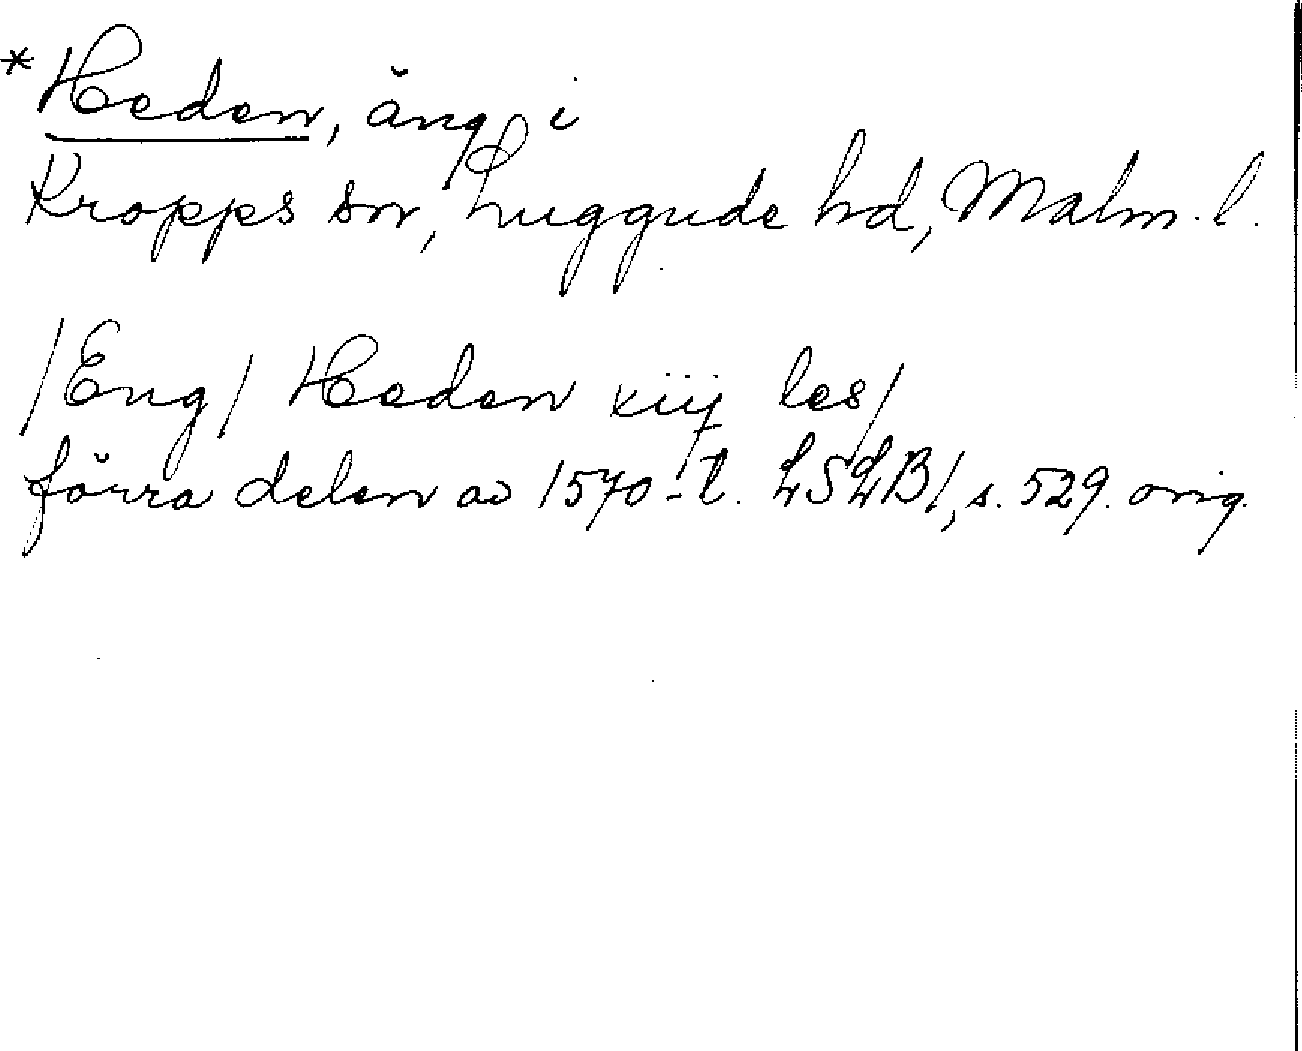 *Heden, äng i
Kropps sn, Luggude hd, Malm. l.
/Eng/ Heden xiij les/
förra delen av 1570-t. LSLB/, s. 529. orig.